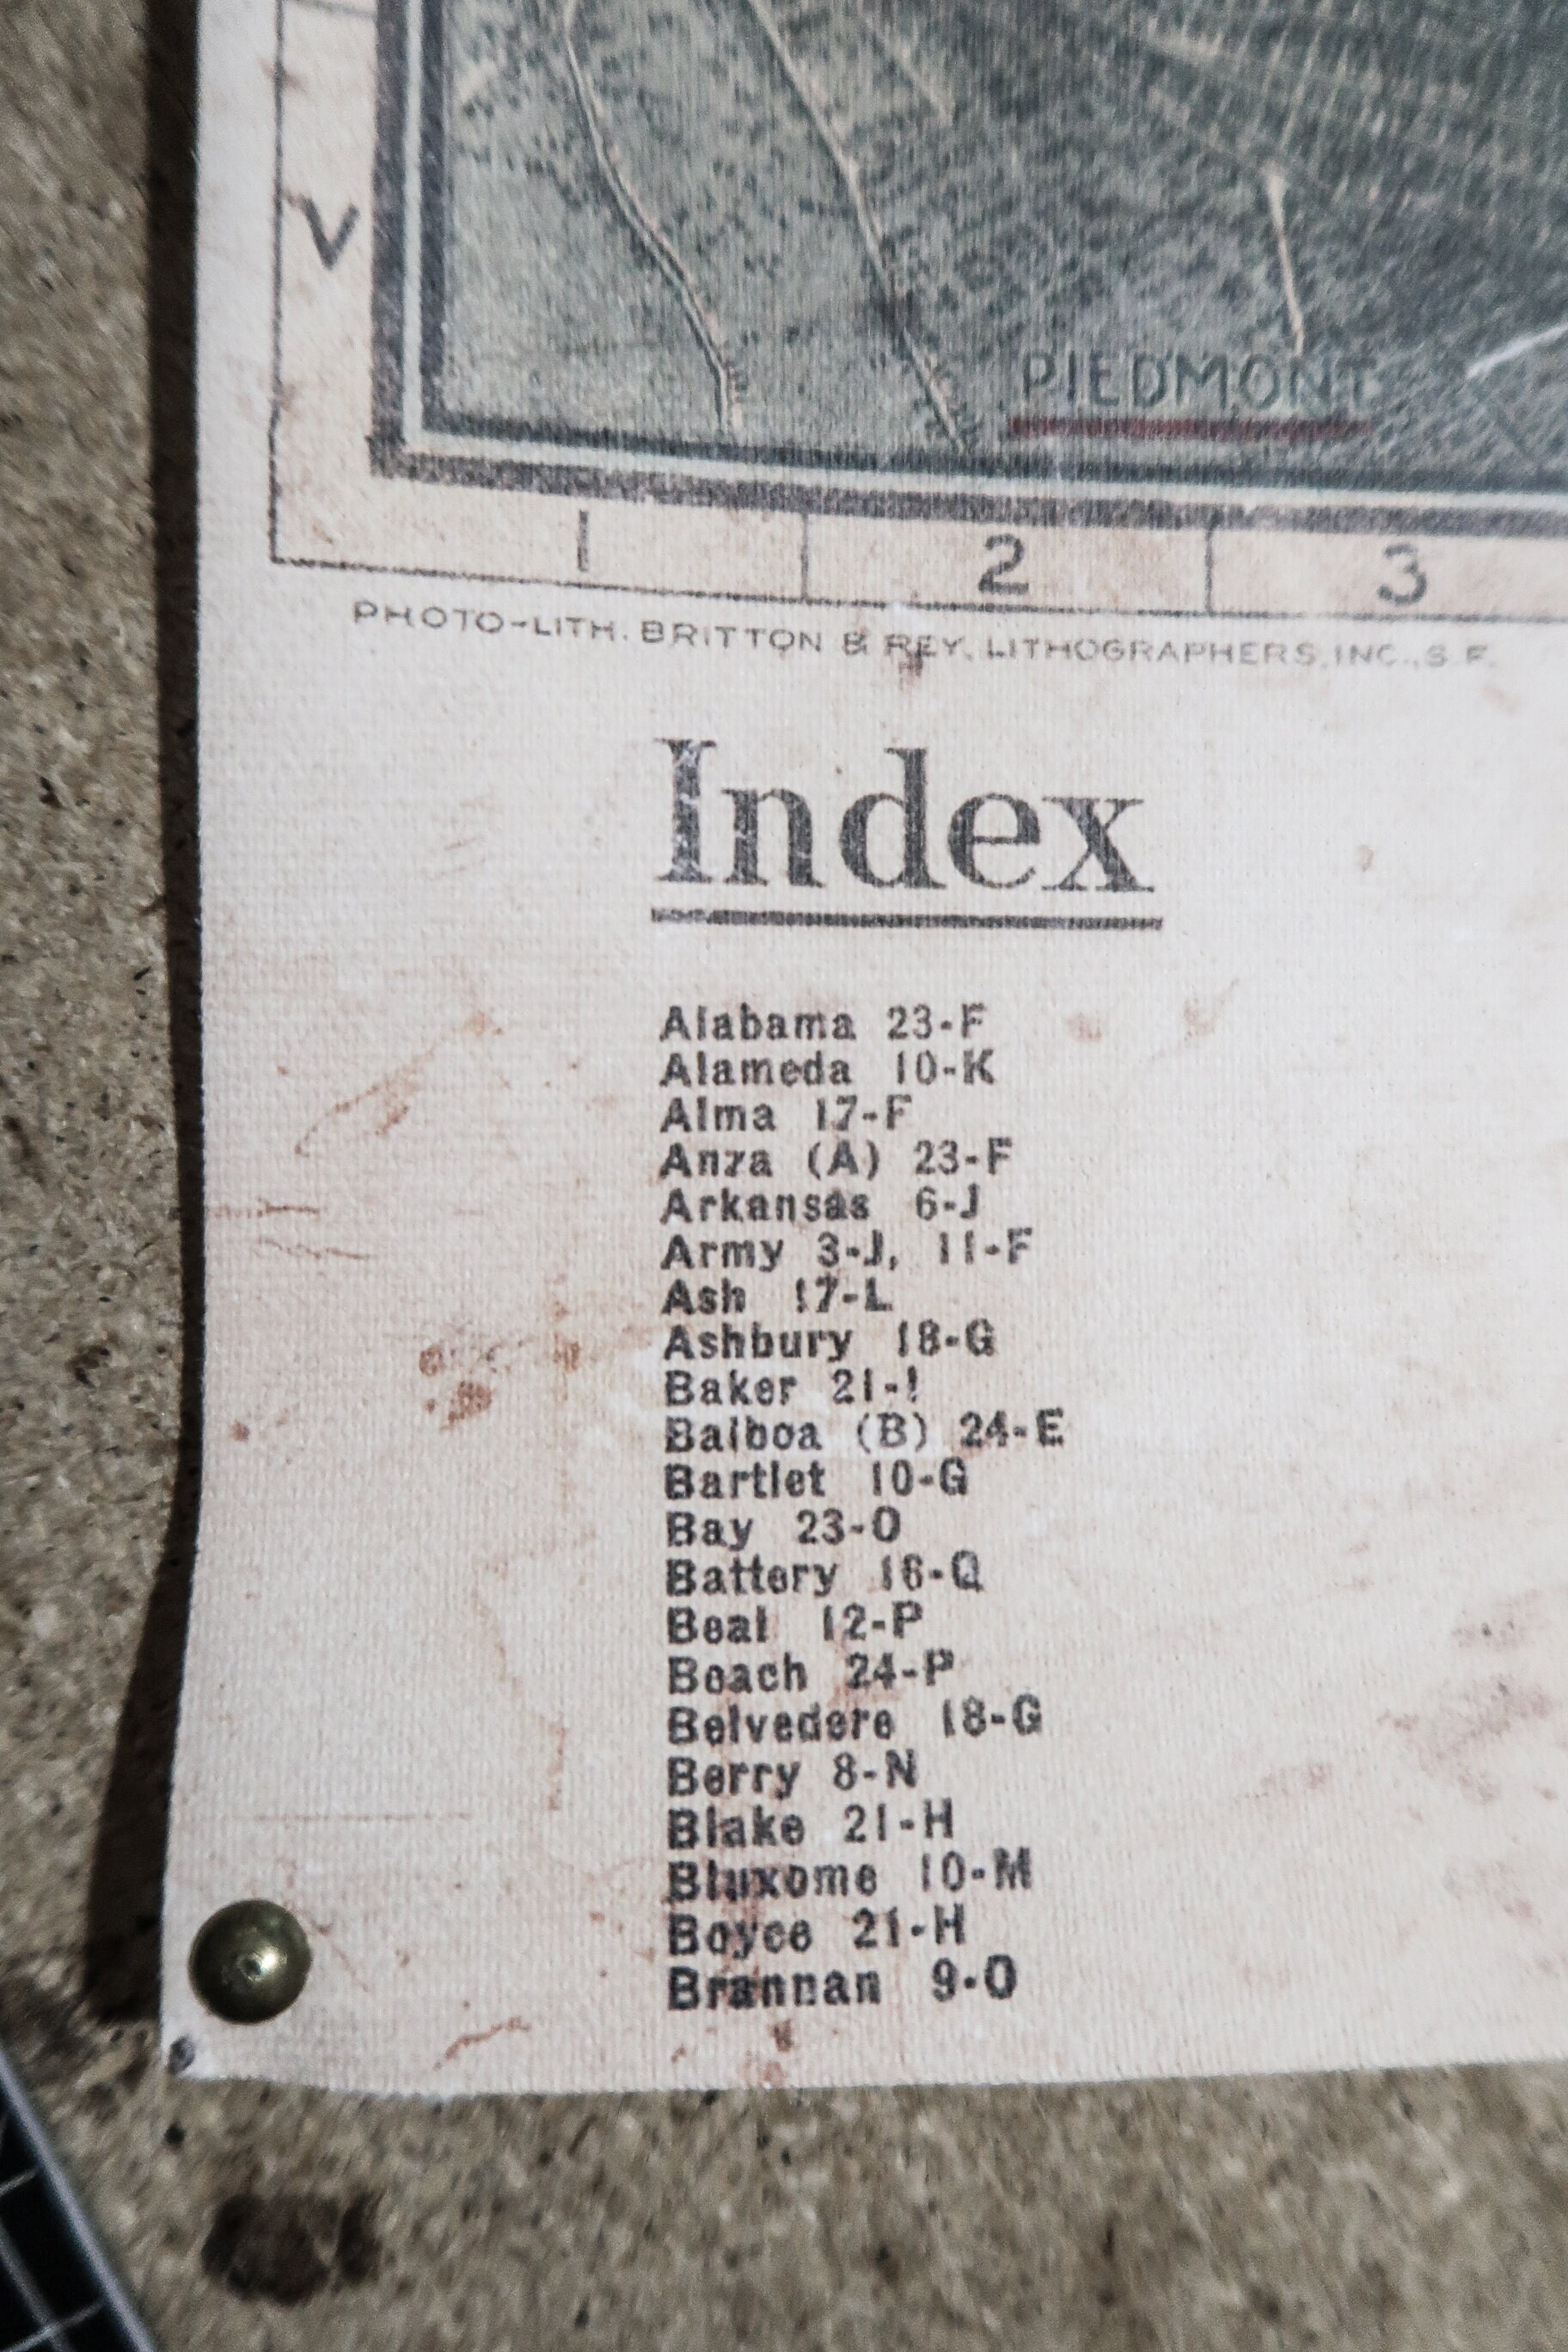 V
PIEDMONT
1 2 3
PHOTO-LITH. BRITTON & REY, LITHOGRAPHERS, INC., S.F.
Index
Alabama 23-F
Alameda 10-K
Alma 17-F
Anza (A) 23-F
Arkansas 6-J
Army 3-J, 11-F
Ash 17-L
Ashbury 18-G
Baker 21-I
Balboa (B) 24-E
Bartlet 10-G
Bay 23-O
Battery 16-Q
Beal 12-P
Beach 24-P
Belvedere 18-G
Berry 8-N
Blake 21-H
Bluxome 10-M
Boyce 21-H
Brannan 9-O